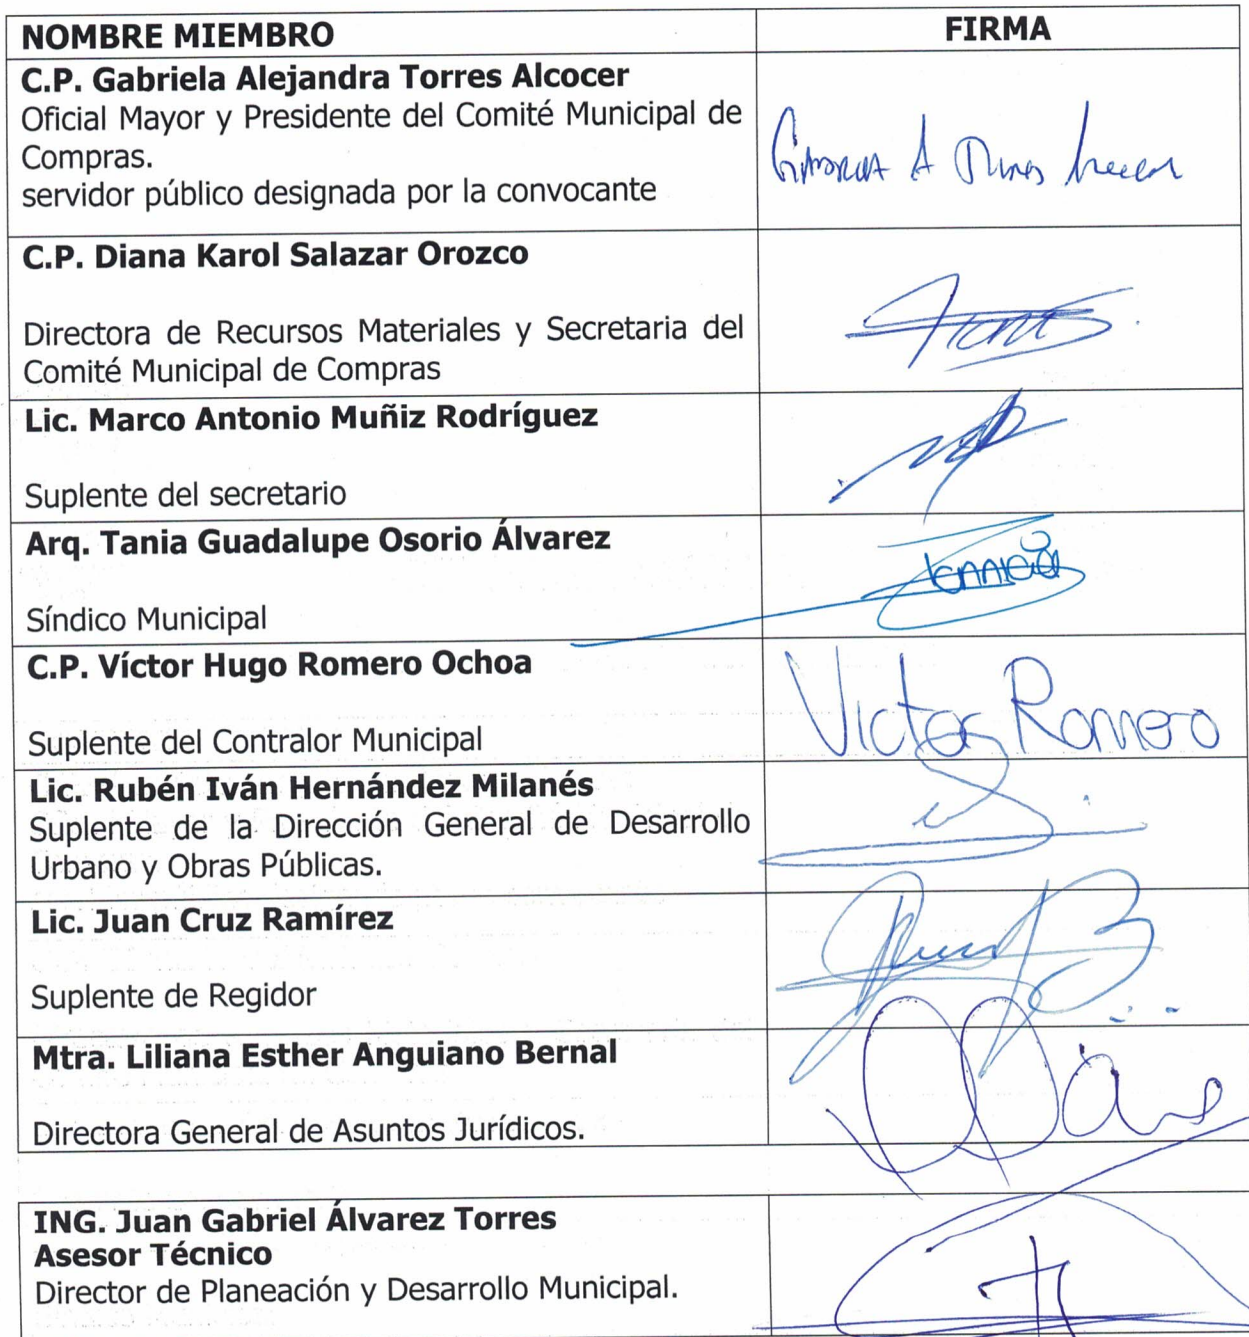 NOMBRE MIEMBRO FIRMA
C.P. Gabriela Alejandra Torres Alcocer
Oficial Mayor y Presidente del Comité Municipal de
Compras.
servidor público designada por la convocante
C.P. Diana Karol Salazar Orozco
Directora de Recursos Materiales y Secretaria del
Comité Municipal de Compras
Lic. Marco Antonio Muñiz Rodríguez
Suplente del secretario
Arq. Tania Guadalupe Osorio Álvarez
Síndico Municipal
C.P. Víctor Hugo Romero Ochoa
Victor Romero
Suplente del Contralor Municipal
Lic. Rubén Iván Hernández Milanés
Suplente de la Dirección General de Desarrollo
Urbano y Obras Públicas.
Lic. Juan Cruz Ramírez
Suplente de Regidor
Mtra. Liliana Esther Anguiano Bernal
Directora General de Asuntos Jurídicos.
ING. Juan Gabriel Álvarez Torres
Asesor Técnico
Director de Planeación y Desarrollo Municipal.